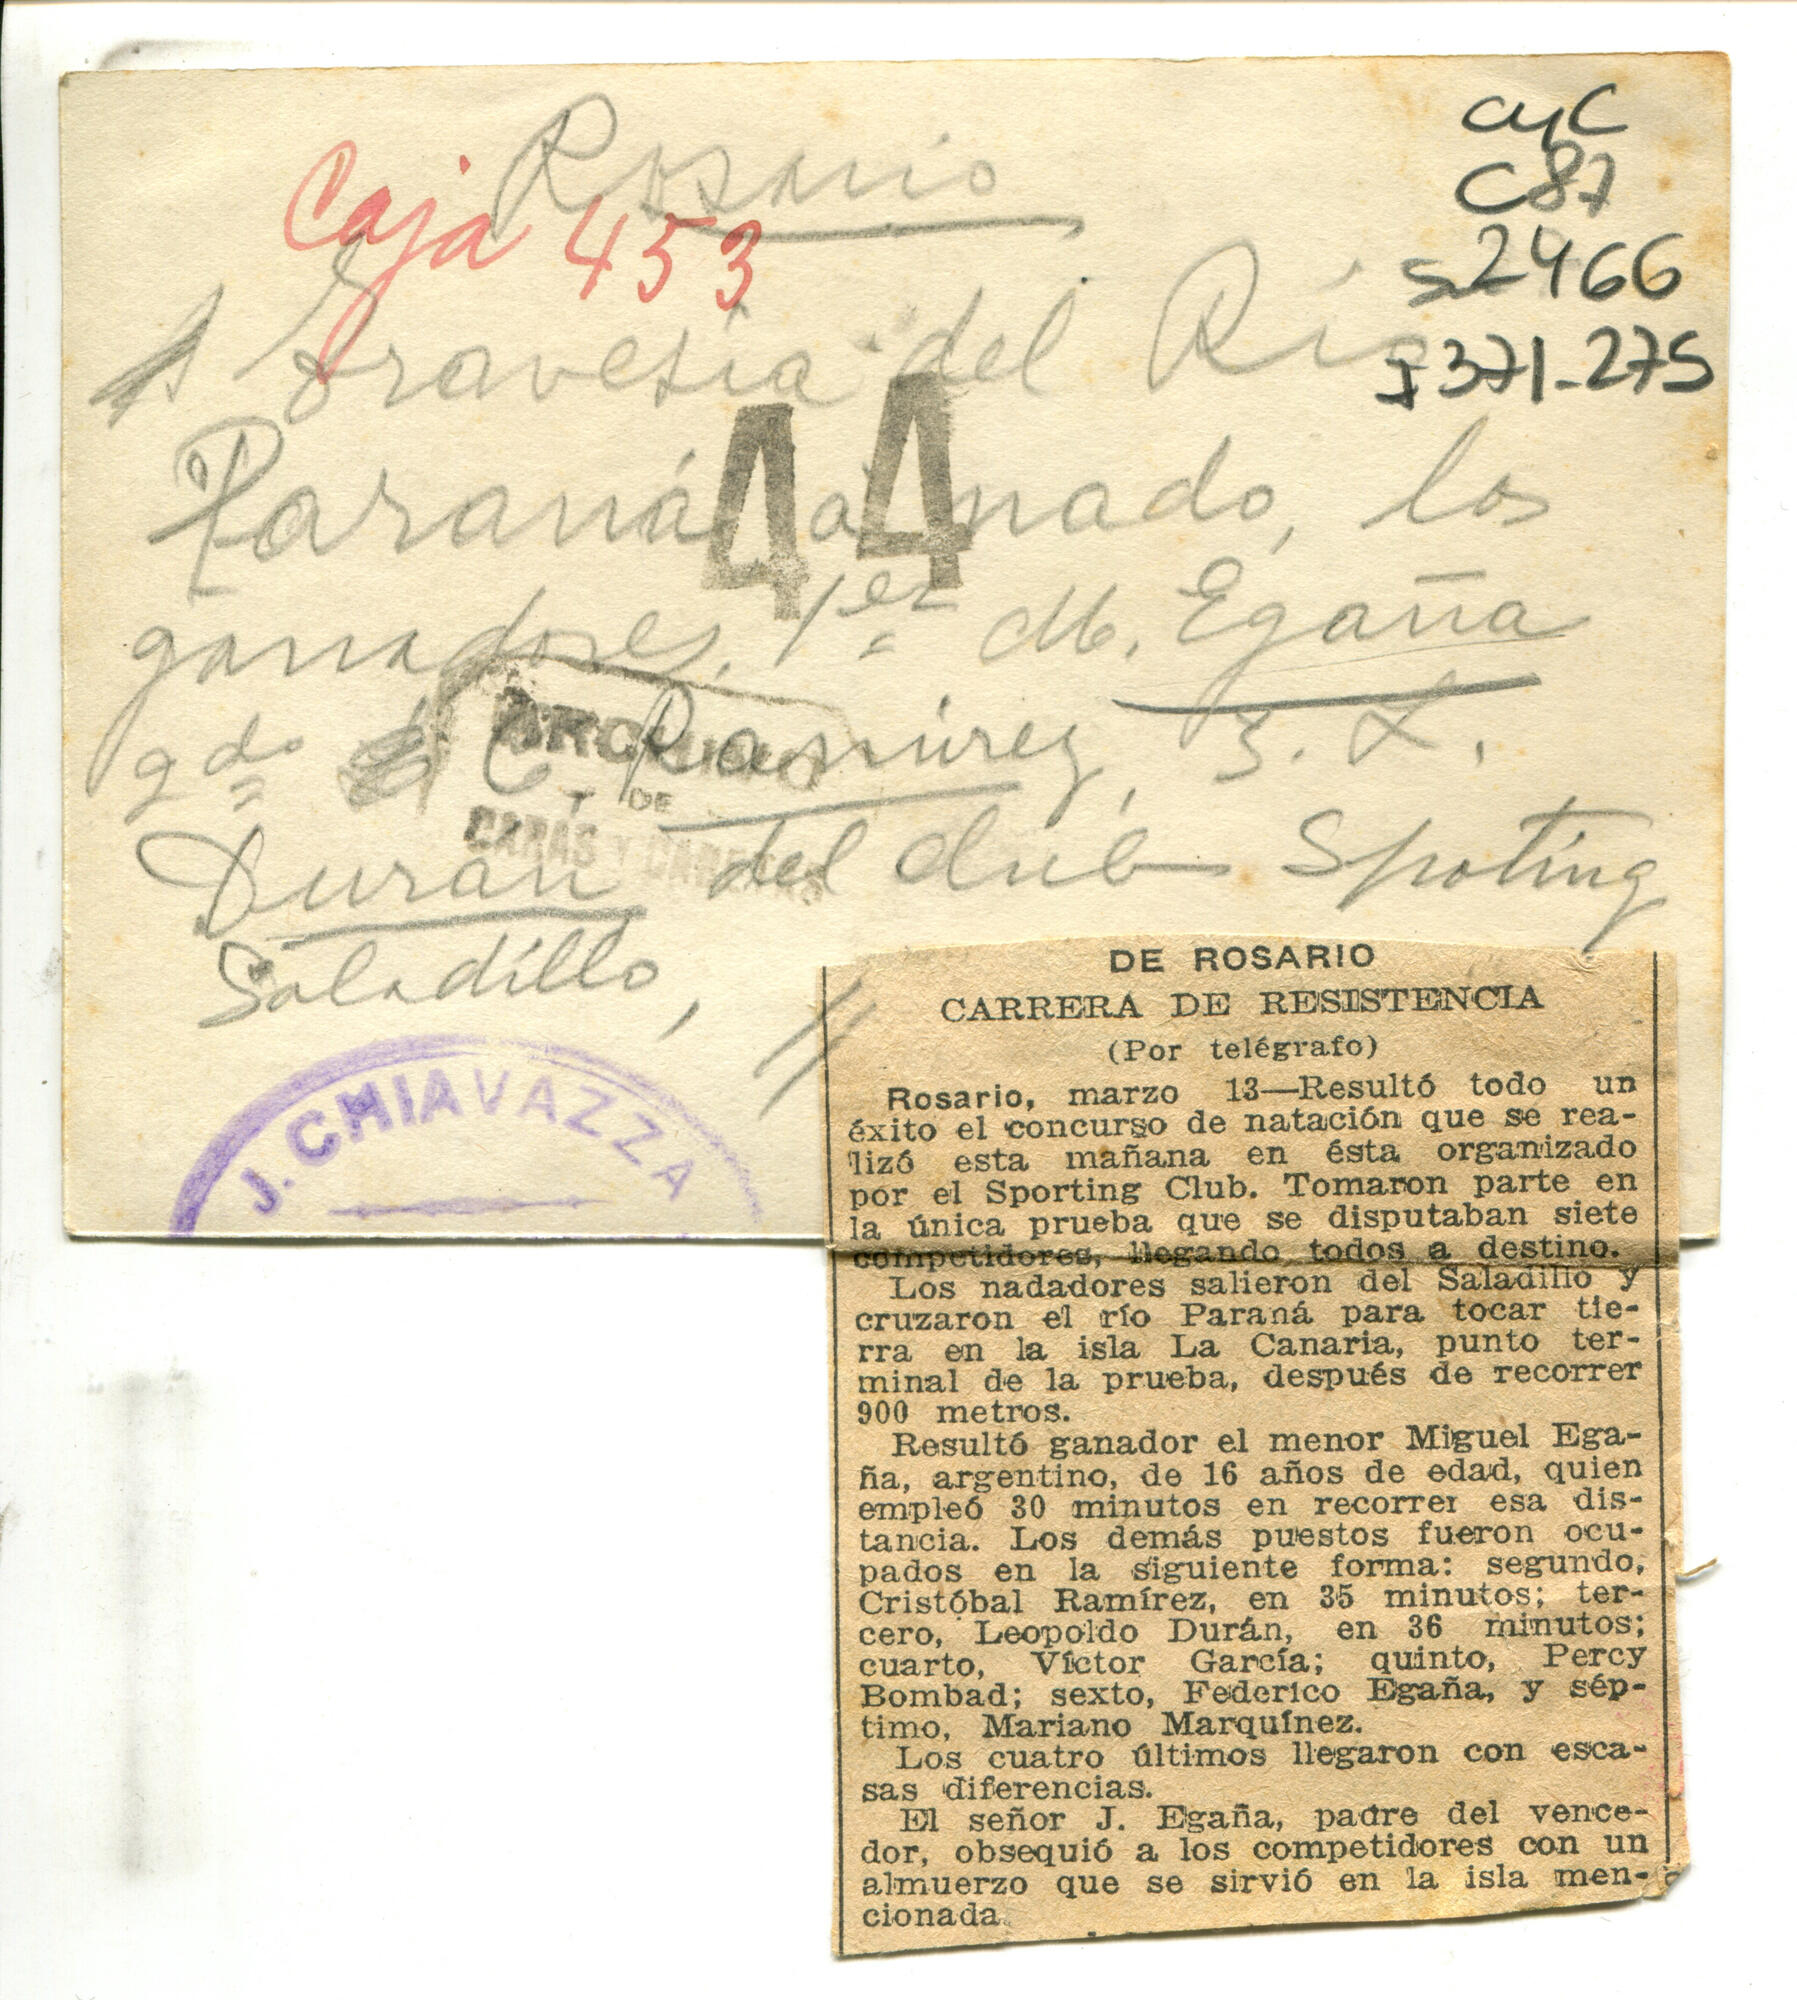 Rosario
Caja 453
CyC
C87
S2466
I371-275
Travesia del Rio
Paraná a nado, los
44
ganadores, 1er M. Egaña
2do C Ramirez, 3. L.
ARCHIVO
DE
CARAS Y CARETAS
Duran del club Spoting
Saladillo,
J. CHIAVAZZA
DE ROSARIO
CARRERA DE RESISTENCIA
(Por telégrafo)
Rosario, marzo 13—Resultó todo un
éxito el concurso de natación que se rea-
lizó esta mañana en ésta organizado
por el Sporting Club. Tomaron parte en
la única prueba que se disputaban siete
competidores, llegando todos a destino.
Los nadadores salieron del Saladillo y
cruzaron el río Paraná para tocar tie-
rra en la isla La Canaria, punto ter-
minal de la prueba, después de recorrer
900 metros.
Resultó ganador el menor Miguel Ega-
ña, argentino, de 16 años de edad, quien
empleó 30 minutos en recorrer esa dis-
tancia. Los demás puestos fueron ocu-
pados en la siguiente forma: segundo,
Cristóbal Ramírez, en 35 minutos; ter-
cero, Leopoldo Durán, en 36 minutos;
cuarto, Víctor García; quinto, Percy
Bombad; sexto, Federico Egaña, y sép-
timo, Mariano Marquínez.
Los cuatro últimos llegaron con esca-
sas diferencias.
El señor J. Egaña, padre del vence-
dor, obsequió a los competidores con un
almuerzo que se sirvió en la isla men-
cionada.